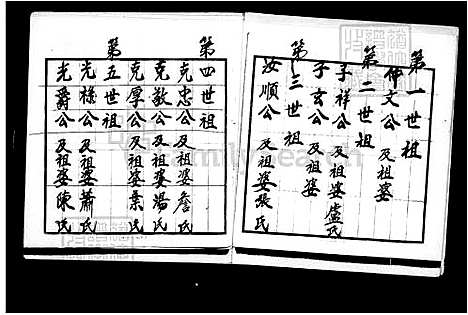 第一世祖
仲文公 及祖婆
第二世祖
子祥公 及祖婆盧氏
子玄公 及祖婆
第三世祖
汝順公 及祖婆張氏
第四世祖
克忠公 及祖婆詹氏
克敦公 及祖婆湯氏
克厚公 及祖婆葉氏
第五世祖
光樣公 及祖婆蕭氏
光爵公 及祖婆陳氏